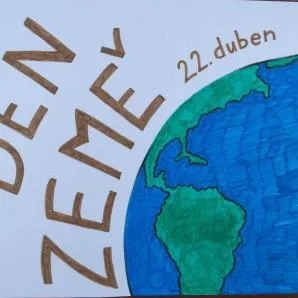 DEN
ZEMĚ
22. duben